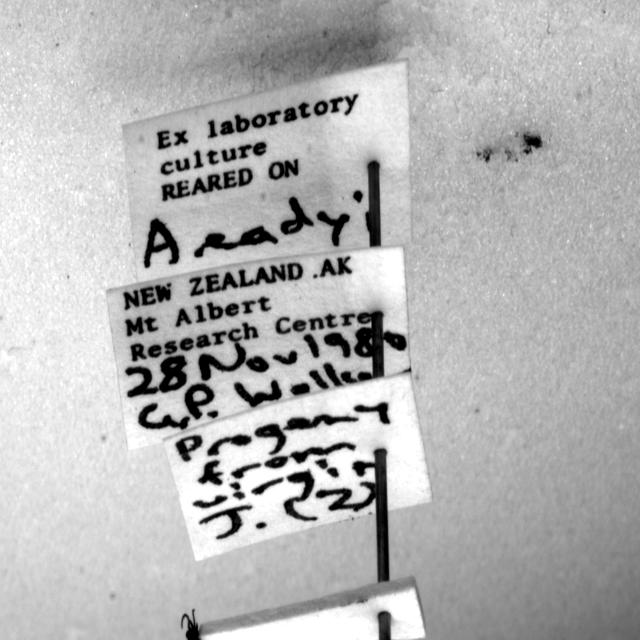 Ex laboratory
culture
REARED ON
A ready'
NEW ZEALAND .AK
Mt Albert
Research Centre
28 Nov 1980
G.P. Walker
Progeny
from
virgin
J.